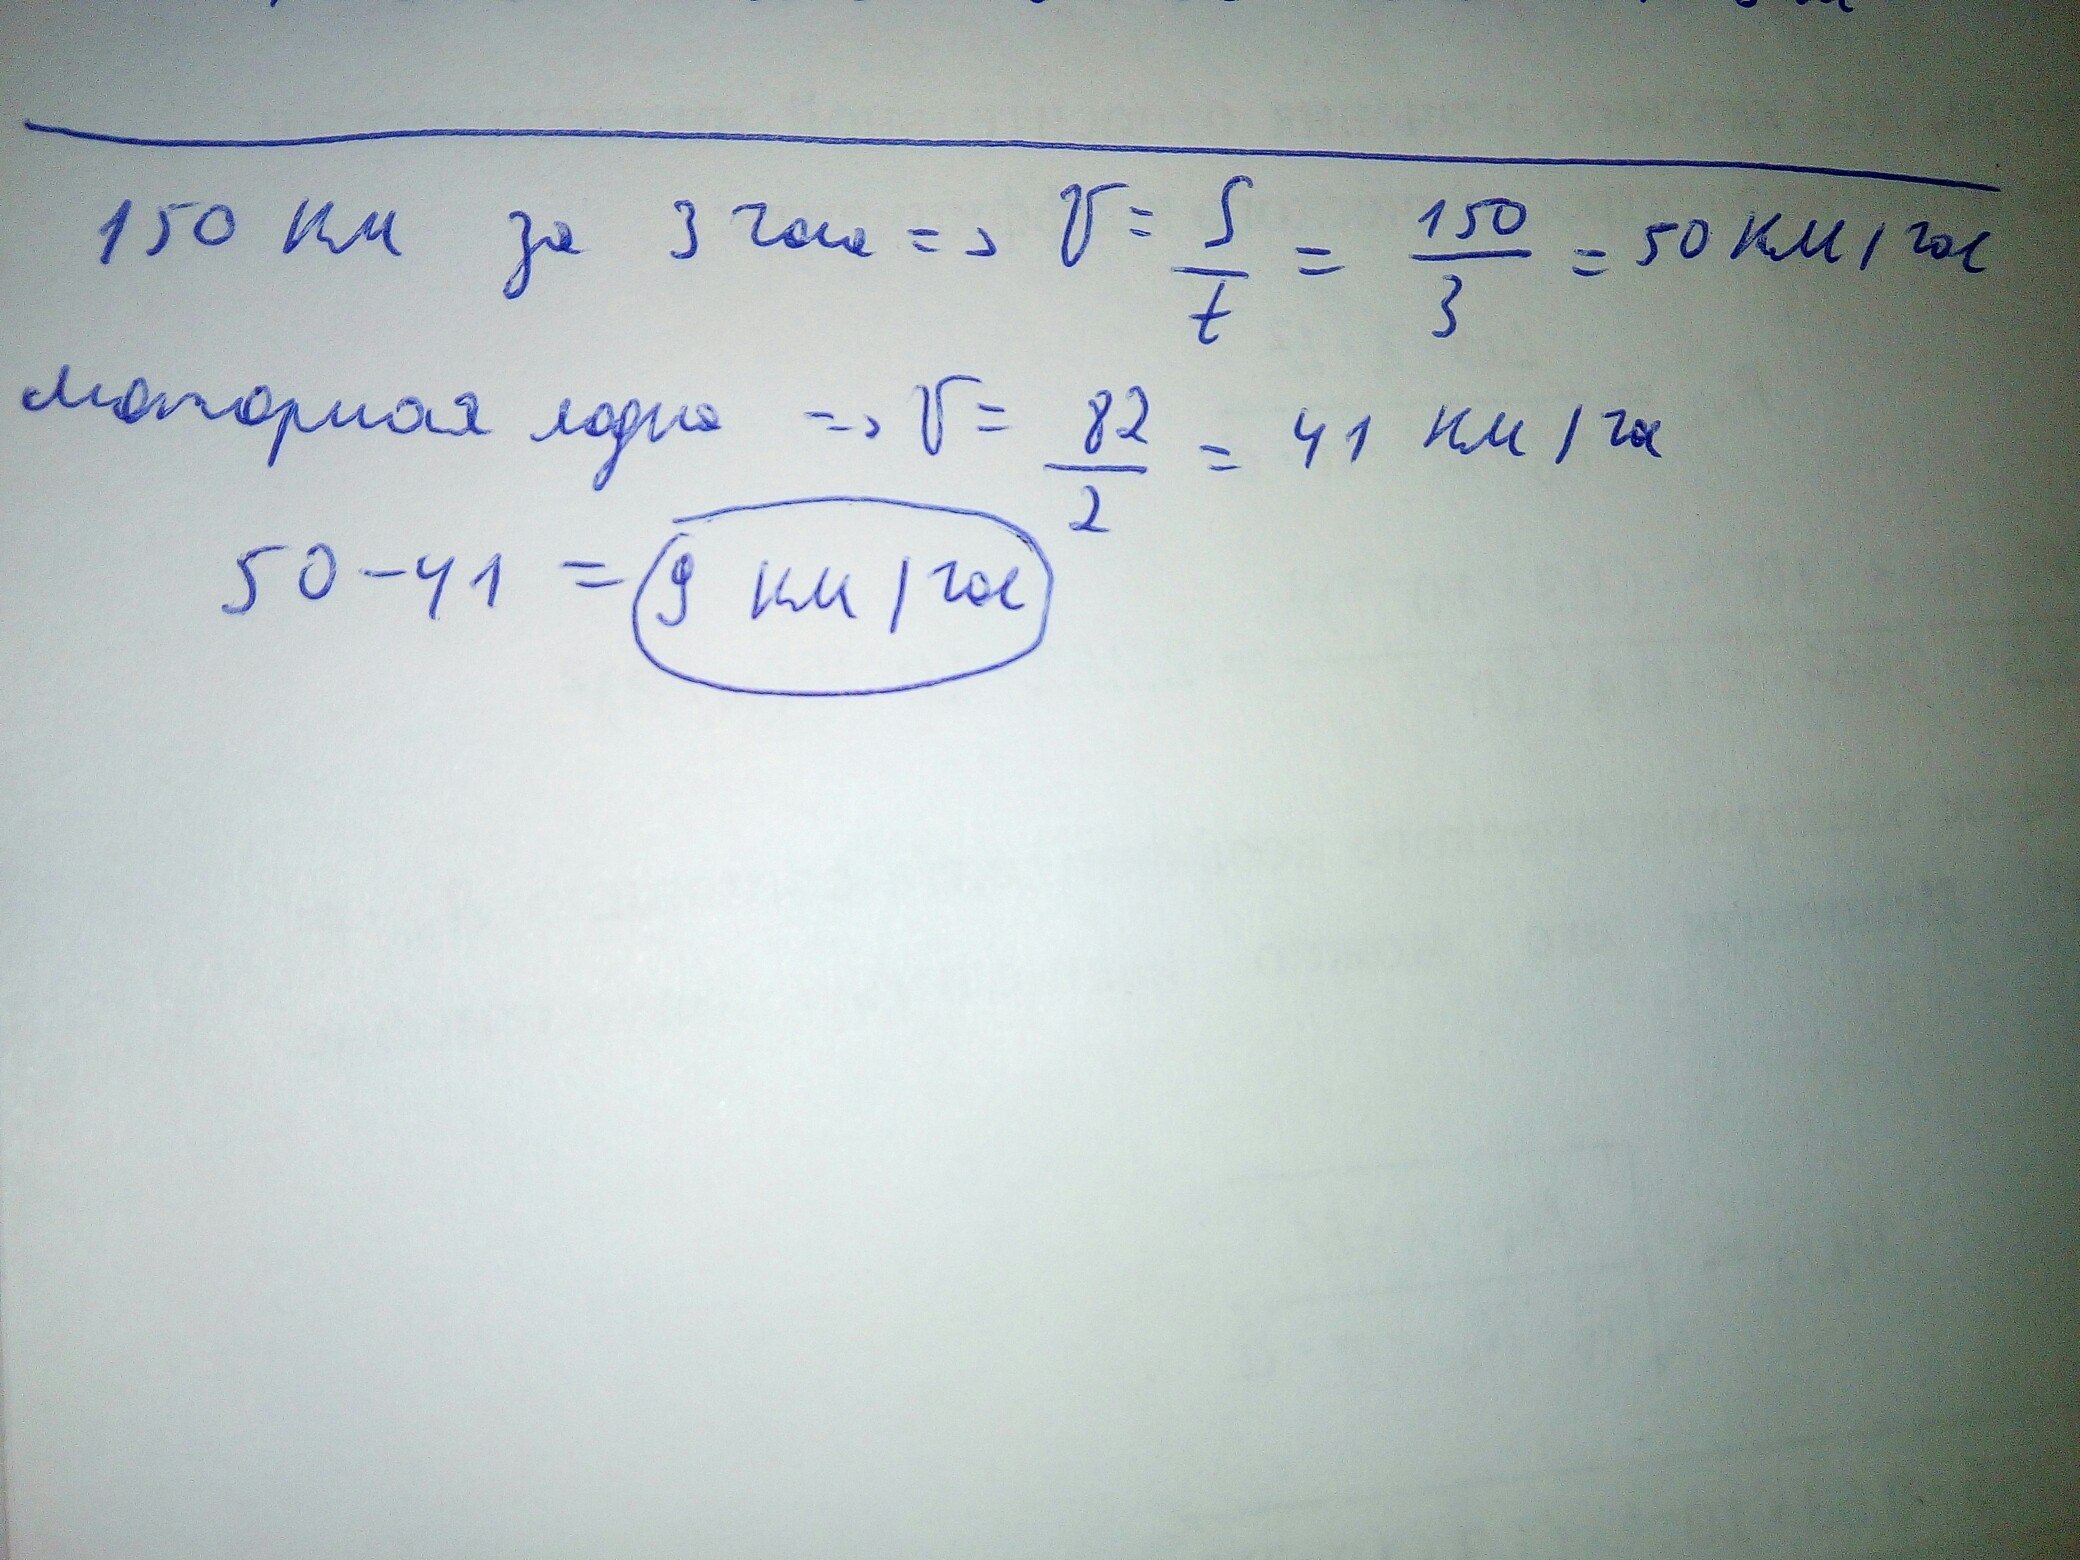 150 км за 3 часа => V = S/t = 150/3 = 50 км/час
моторная лодка => V = 82/2 = 41 км/ча
50-41 = 9 км/час